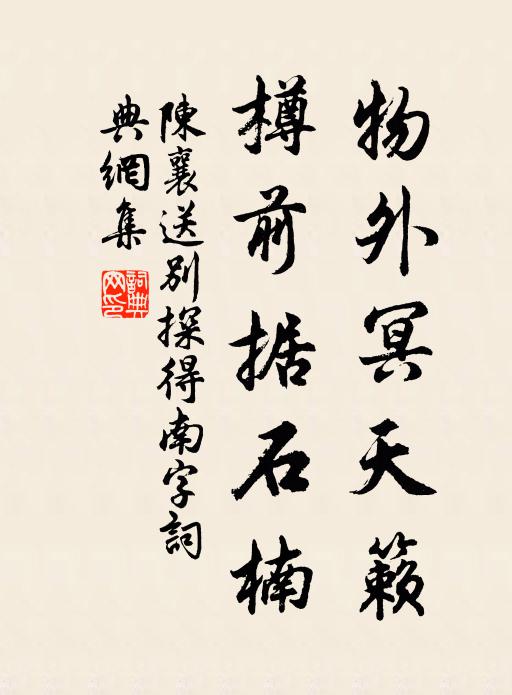 物外冥天籟
樽前据石楠
陳襄送別探得南字詞
典網集
詞典網印